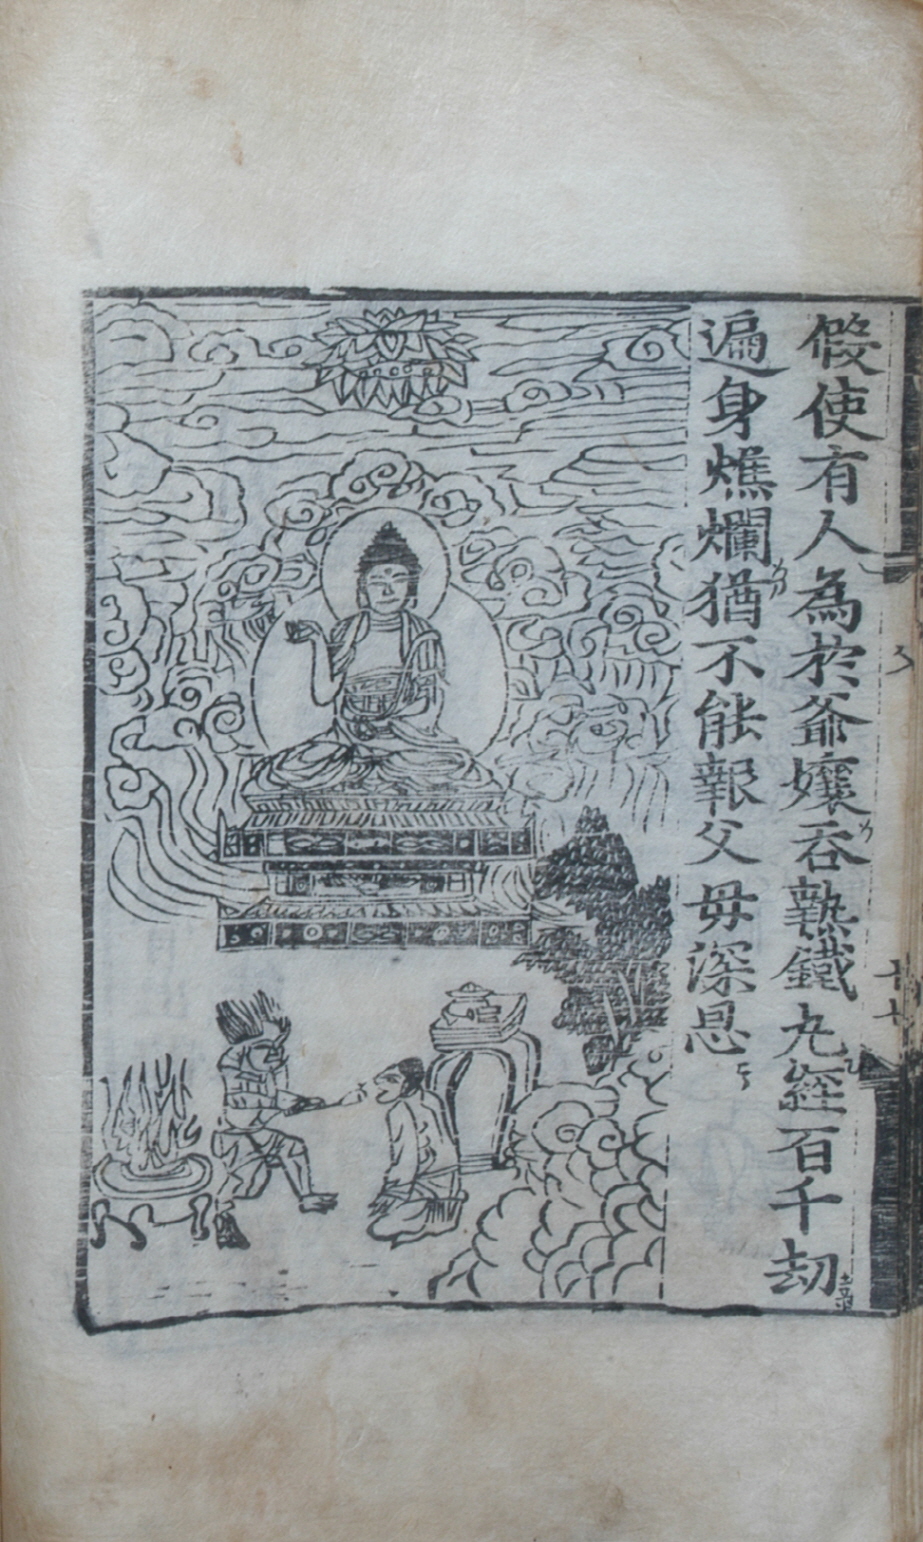 假使有人為於爺孃吞熱鐵丸經百千劫
遍身燋爛猶不能報父母深恩